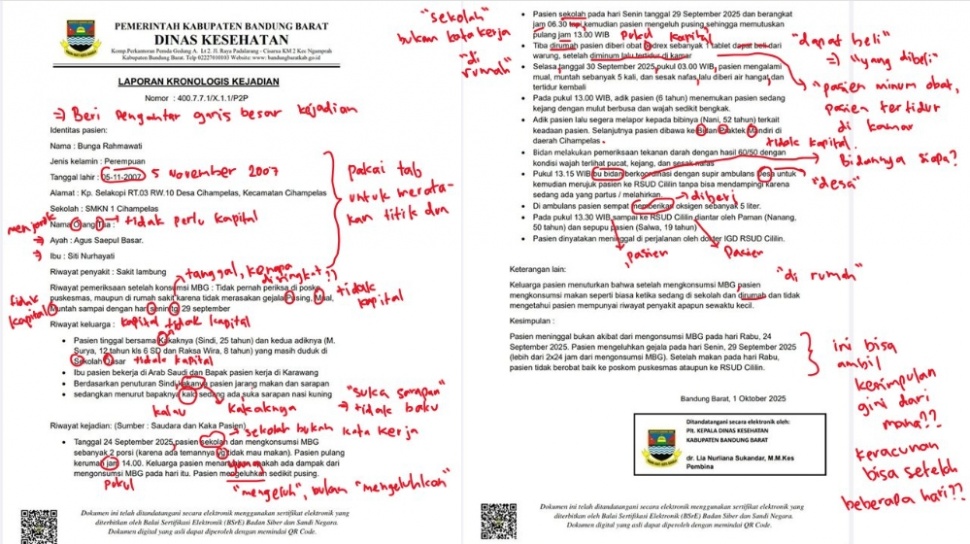 PEMERINTAH KABUPATEN BANDUNG BARAT
DINAS KESEHATAN
Komp.Perkantoran Pemda Gedung A. Lt 2. Jl. Raya Padalarang - Cisarua KM 2 Kec Ngamprah
Kabupaten Bandung Barat.
LAPORAN KRONOLOGIS KEJADIAN
Nomor : 400.7.7.1/X.1.1/P2P
=> Beri pengantar garis besar kejadian
Identitas pasien:
Nama : Bunga Rahmawati
Jenis kelamin : Perempuan
Tanggal lahir : 05-11-2007
5 November 2007
Alamat : Kp. Selakopi RT.03 RW.10 Desa Cihampelas, Kecamatan Cihampelas
Sekolah : SMKN 1 Cihampelas
Nama Orang Tua :
-> tidak perlu kapital
menjorok
Ayah : Agus Saepul Basar.
Ibu : Siti Nurhayati
pakai tab
untuk merata-
kan titik dua
Riwayat penyakit : Sakit lambung
tanggal, kenapa
disingkat :)
Riwayat pemeriksaan setelah konsumsi MBG : Tidak pernah periksa di posko
puskesmas, maupun di rumah sakit karena tidak merasakan gejala Pusing, Mual,
Muntah sampai dengan hari senin tg 29 september
tidak
kapital
tidak
kapital
Riwayat keluarga :
kapital tidak kapital
• Pasien tinggal bersama Kakaknya (Sindi, 25 tahun) dan kedua adiknya (M.
Surya, 12 tahun kls 6 SD dan Raksa Wira, 8 tahun) yang masih duduk di
Sekolah Dasar
tidak kapital
• Ibu pasien bekerja di Arab Saudi dan Bapak pasien kerja di Karawang
• Berdasarkan penuturan Sindi kakanya pasien jarang makan dan sarapan
• sedangkan menurut bapaknya kalo sedang ada suka sarapan nasi kuning
kalau
kakaknya
"suka sarapan"
-> tidak baku
Riwayat kejadian: (Sumber : Saudara dan Kaka Pasien)
-> sekolah bukan kata kerja
• Tanggal 24 September 2025 pasien sekolah dan mengkonsumsi MBG
sebanyak 2 porsi (karena ada temannya yg tidak mau makan). Pasien pulang
kerumah jam 14.00. Keluarga pasien menanyakan apakah ada dampak dari
mengonsumsi MBG pada hari itu. Pasien mengeluhkan sedikit pusing.
pukul
yang
"mengeluh", bukan "mengeluhkan"
Dokumen ini telah ditandatangani secara elektronik menggunakan sertifikat elektronik yang
diterbitkan oleh Balai Sertifikasi Elektronik (BSrE) Badan Siber dan Sandi Negara.
Dokumen digital yang asli dapat diperoleh dengan memindai QR Code.
"sekolah"
bukan kata kerja
"di
rumah"
• Pasien sekolah pada hari Senin tanggal 29 September 2025 dan berangkat
jam 06.30 tapi kemudian pasien mengeluh pusing sehingga memutuskan
pulang jam 13.00 WIB
pukul
kapital
• Tiba dirumah pasien diberi obat bodrex sebanyak 1 tablet dapat beli dari
warung, setelah diminum lalu tertidur di kamar
"dapat beli"
=> "yang dibeli"
• Selasa tanggal 30 September 2025 pukul 03.00 WIB, pasien mengalami
mual, muntah sebanyak 5 kali, dan sesak nafas, lalu diberi air hangat dan
tertidur kembali
pasien minum obat,
pasien tertidur
di kamar
• Pada pukul 13.00 WIB, adik pasien (6 tahun) menemukan pasien sedang
kejang dengan mulut berbusa dan wajah sedikit bengkak.
• Adik pasien lalu segera melapor kepada bibinya (Nani, 52 tahun) terkait
keadaan pasien. Selanjutnya pasien dibawa ke Bidan Praktek Mandiri di
daerah Cihampelas.
tidak kapital
• Bidan melakukan pemeriksaan tekanan darah dengan hasil 60/50 dengan
kondisi wajah terlihat pucat, kejang, dan sesak nafas
Bidannya siapa?
• Pukul 13.15 WIB bu bidan berkoordinasi dengan supir ambulans Desa untuk
kemudian merujuk pasien ke RSUD Cililin tanpa bisa mendampingi karena
sedang ada yang partus / melahirkan.
"desa"
diberi
• Di ambulans pasien sempat memberikan oksigen sebanyak 5 liter.
• Pada pukul 13.30 WIB sampai ke RSUD Cililin diantar oleh Paman (Nanang,
50 tahun) dan sepupu pasien (Salwa, 19 tahun)
• Pasien dinyatakan meninggal di perjalanan oleh dokter IGD RSUD Cililin.
pasien
pasien
Keterangan lain:
"di rumah"
Keluarga pasien menuturkan bahwa setelah mengkonsumsi MBG pasien
mengkonsumsi makanan seperti biasa ketika sedang di sekolah dan dirumah dan tidak
mengetahui pasien mempunyai riwayat penyakit apapun sewaktu kecil.
Kesimpulan :
Pasien meninggal bukan akibat dari mengonsumsi MBG pada hari Rabu, 24
September 2025. Pasien mengeluhkan gejala pada hari Senin, 29 September 2025
(lebih dari 2x24 jam dari mengonsumsi MBG). Setelah makan pada hari Rabu,
pasien tidak berobat baik ke poskom puskesmas ataupun ke RSUD Cililin.
ini bisa
ambil
kesimpulan
gini dari
mana??
keracunan
bisa setelah
beberapa hari??
Bandung Barat, 1 Oktober 2025
Ditandatangani secara elektronik oleh:
Plt. KEPALA DINAS KESEHATAN
KABUPATEN BANDUNG BARAT
dr. Lia Nurliana Sukandar, M.M.Kes
Pembina
Dokumen ini telah ditandatangani secara elektronik menggunakan sertifikat elektronik yang
diterbitkan oleh Balai Sertifikasi Elektronik (BSrE) Badan Siber dan Sandi Negara.
Dokumen digital yang asli dapat diperoleh dengan memindai QR Code.